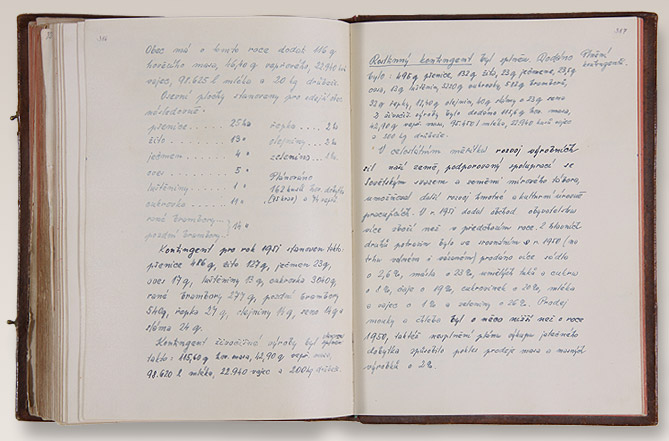 386
Obec má v tomto roce dodat 116 q
hovězího masa, 46,40 q vepřového, 22.940 kusů
vajec, 98.625 l mléka a 20 kg drůbeže.
Osevní plochy stanoveny pro zdejší obec
následovně:
pšenice .... 25 ha řepka .... 2 ha
žito ..... 13 " olejniny .. 2 ha
ječmen .... 4 " zelenina ..
oves ..... 5 " Plánováno
luštěniny .... 1 " 162 kusů hov. dobytka
cukrovka .... 11 "
rané brambory...
pozdní brambory.. 14 "
Kontingent pro rok 1951 stanoven takto:
pšenice 486 q, žito 127 q, ječmen 23 q,
oves 17 q, luštěniny 13 q, cukrovka 3040 q
rané brambory 277 q, pozdní brambory
540 q, řepka 27 q, olejniny 14 q, seno 14 q a
sláma 24 q.
Kontingent živočišné výroby byl
takto: 115,60 q hov. masa, 42,90 q vepř. masa,
98.620 l mléka, 22.940 vajec a 200 kg drůbeže.
387
Rostlinný kontingent byl splněn. Dodáno Plnění
bylo: 496 q pšenice, 132 q žita, 23 q ječmene, kontingentů.
ovsa, 13 q luštěnin, 2210 q cukrovky, 502 q bramborů,
32 q řepky, 12,40 q olejnin, 60 q slámy a 23 q sena
Z živočiš. výroby bylo dodáno 117,6 q hov. masa,
42,90 q vepř. masa, 95.650 l mléka, 22.940 kusů vajec
a 200 kg drůbeže.
V celostátním měřítku rozvoj výrobních
sil naší země, podporovaný spoluprací se
Sovětským svazem a zeměmi mírového tábora,
umožňoval další rozvoj hmotné a kulturní úrovně
pracujících. V r. 1951 dodal obchod obyvatelstvu
více zboží než v předchozím roce. Z hlavních
druhů potravin bylo ve srovnání s r. 1950 (na
trhu volném i vázaném) prodáno více sádla
o 2,6 %, másla o 23 %, umělých tuků a cukru
o 1 %, čaje o 19 %, cukrovinek o 20 %, mléka
a vajec o 1 % a zeleniny o 26 %. Prodej
mouky a chleba byl o něco nižší než v roce
1950, taktéž nesplnění plánu výkupu jatečného
dobytka způsobilo pokles prodeje masa a masných
výrobků o 2 %.